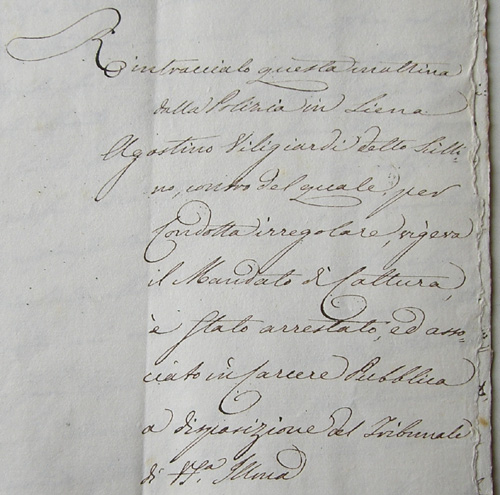 Rintracciato questa mattina
dalla Polizia in Siena
Agostino Viligiardi detto Lilli-
no, contro del quale per
Condotta irregolare, vigeva
il Mandato di Cattura,
è stato arrestato, ed asso-
ciato in Carcere Pubblica
a disposizione del Tribunale
di V.ª Illma